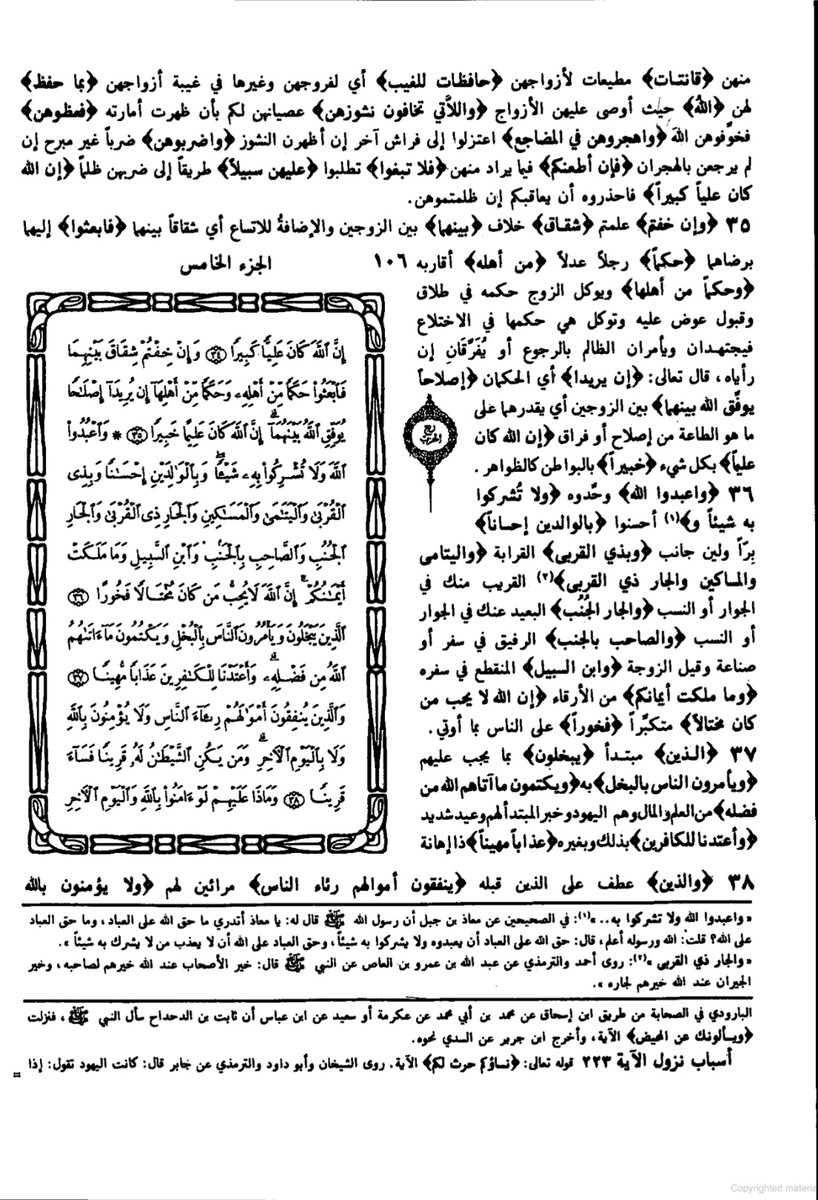 منهن ﴿قانتات﴾ مطيعات لأزواجهن ﴿حافظات للغيب﴾ أي لفروجهن وغيرها في غيبة أزواجهن ﴿بما حفظ﴾
لهن ﴿اللهُ﴾ حيث أوصى عليهن الأزواج ﴿واللاَّتي تخافون نشوزهن﴾ عصيانهن لكم بأن ظهرت أمارته ﴿فعظوهن﴾
فخوِّفوهن اللهَ ﴿واهجروهن في المضاجع﴾ اعتزلوا إلى فراش آخر إن أظهرن النشوز ﴿واضربوهن﴾ ضرباً غير مبرح إن
لم يرجعن بالهجران ﴿فإن أطعنكم﴾ فيما يراد منهن ﴿فلا تبغوا﴾ تطلبوا ﴿عليهن سبيلاً﴾ طريقاً إلى ضربهن ظلماً ﴿إن الله
كان علياً كبيراً﴾ فاحذروه أن يعاقبكم إن ظلمتموهن.
٣٥ ﴿وإن خفتم﴾ علمتم ﴿شقاق﴾ خلاف ﴿بينهما﴾ بين الزوجين والإضافةُ للاتساع أي شقاقاً بينهما ﴿فابعثوا﴾ إليهما
برضاهما ﴿حكماً﴾ رجلاً عدلاً ﴿من أهله﴾ أقاربه
﴿وحكماً من أهلها﴾ ويوكل الزوج حكمه في طلاق
وقبول عوض عليه وتوكل هي حكمها في الاختلاع
فيجتهدان ويأمران الظالم بالرجوع أو يُفَرِّقَانِ إن
رأياه، قال تعالى: ﴿إن يريدا﴾ أي الحكمان ﴿إصلاحاً
يوفِّق الله بينهما﴾ بين الزوجين أي يقدرهما على
ما هو الطاعة من إصلاح أو فراق ﴿إن الله كان
علياً﴾ بكل شيء ﴿خبيراً﴾ بالبواطن كالظواهر.
٣٦ ﴿واعبدوا الله﴾ وحِّدوه ﴿ولا تُشركوا
به شيئاً و﴾(١) أحسنوا ﴿بالوالدين إحساناً﴾
بِرّاً ولين جانب ﴿وبذي القربى﴾ القرابة ﴿واليتامى
والمساكين والجار ذي القربى﴾(٢) القريب منك في
الجوار أو النسب ﴿والجار الجُنُب﴾ البعيد عنك في الجوار
أو النسب ﴿والصاحب بالجنب﴾ الرفيق في سفر أو
صناعة وقيل الزوجة ﴿وابن السبيل﴾ المنقطع في سفره
﴿وما ملكت أيمانكم﴾ من الأرقاء ﴿إن الله لا يحب من
كان مختالاً﴾ متكبِّراً ﴿فخوراً﴾ على الناس بما أوتي.
٣٧ ﴿الـذين﴾ مبتـدأ ﴿يبخلون﴾ بما يجب عليهم
﴿ويأمرون الناس بالبخل﴾ به ﴿ويكتمون ما آتاهم الله من
فضله﴾ من العلم والمال وهم اليهود وخبر المبتدأ لهم وعيد شديد
﴿وأعتدنا للكافرين﴾ بذلك وبغيره ﴿عذاباً مهيناً﴾ ذا إهانة
١٠٦ الجزء الخامس
إِنَّ ٱللَّهَ كَانَ عَلِيًّا كَبِيرًا ٣٤ وَإِنْ خِفْتُمْ شِقَاقَ بَيْنِهِمَا
فَٱبْعَثُوا۟ حَكَمًا مِّنْ أَهْلِهِۦ وَحَكَمًا مِّنْ أَهْلِهَآ إِن يُرِيدَآ إِصْلَٰحًا
يُوَفِّقِ ٱللَّهُ بَيْنَهُمَآ ۗ إِنَّ ٱللَّهَ كَانَ عَلِيمًا خَبِيرًا ٣٥ * وَٱعْبُدُوا۟
ٱللَّهَ وَلَا تُشْرِكُوا۟ بِهِۦ شَيْـًٔا ۖ وَبِٱلْوَٰلِدَيْنِ إِحْسَٰنًا وَبِذِى
ٱلْقُرْبَىٰ وَٱلْيَتَٰمَىٰ وَٱلْمَسَٰكِينِ وَٱلْجَارِ ذِى ٱلْقُرْبَىٰ وَٱلْجَارِ
ٱلْجُنُبِ وَٱلصَّاحِبِ بِٱلْجَنۢبِ وَٱبْنِ ٱلسَّبِيلِ وَمَا مَلَكَتْ
أَيْمَٰنُكُمْ ۗ إِنَّ ٱللَّهَ لَا يُحِبُّ مَن كَانَ مُخْتَالًا فَخُورًا ٣٦
ٱلَّذِينَ يَبْخَلُونَ وَيَأْمُرُونَ ٱلنَّاسَ بِٱلْبُخْلِ وَيَكْتُمُونَ مَآ ءَاتَىٰهُمُ
ٱللَّهُ مِن فَضْلِهِۦ ۗ وَأَعْتَدْنَا لِلْكَٰفِرِينَ عَذَابًا مُّهِينًا ٣٧
وَٱلَّذِينَ يُنفِقُونَ أَمْوَٰلَهُمْ رِئَآءَ ٱلنَّاسِ وَلَا يُؤْمِنُونَ بِٱللَّهِ
وَلَا بِٱلْيَوْمِ ٱلْـَٔاخِرِ ۗ وَمَن يَكُنِ ٱلشَّيْطَٰنُ لَهُۥ قَرِينًا فَسَآءَ
قَرِينًا ٣٨ وَمَاذَا عَلَيْهِمْ لَوْ ءَامَنُوا۟ بِٱللَّهِ وَٱلْيَوْمِ ٱلْـَٔاخِرِ
ربع
الحزب
٣٨ ﴿والذين﴾ عطف على الذين قبله ﴿ينفقون أموالهم رئاء الناس﴾ مرائين لهم ﴿ولا يؤمنون بالله
«واعبدوا الله ولا تشركوا به..»(١): في الصحيحين عن معاذ بن جبل أن رسول الله ﷺ قال له: يا معاذ أتدري ما حق الله على العباد، وما حق العباد
على الله؟ قلت: الله ورسوله أعلم، قال: حق الله على العباد أن يعبدوه ولا يشركوا به شيئاً، وحق العباد على الله أن لا يعذب من لا يشرك به شيئاً».
«والجار ذي القربى»(٢): روى أحمد والترمذي عن عبد الله بن عمرو بن العاص عن النبي ﷺ قال: خير الأصحاب عند الله خيرهم لصاحبه، وخير
الجيران عند الله خيرهم لجاره».
البارودي في الصحابة من طريق ابن إسحاق عن محمد بن أبي محمد عن عكرمة أو سعيد عن ابن عباس أن ثابت بن الدحداح سأل النبي ﷺ، فنزلت
﴿ويسألونك عن المحيض﴾ الآية، وأخرج ابن جرير عن السدي نحوه.
أسباب نزول الآية ٢٢٣ قوله تعالى: ﴿نساؤكم حرث لكم﴾ الآية. روى الشيخان وأبو داود والترمذي عن جابر قال: كانت اليهود تقول: إذا
Copyrighted materia